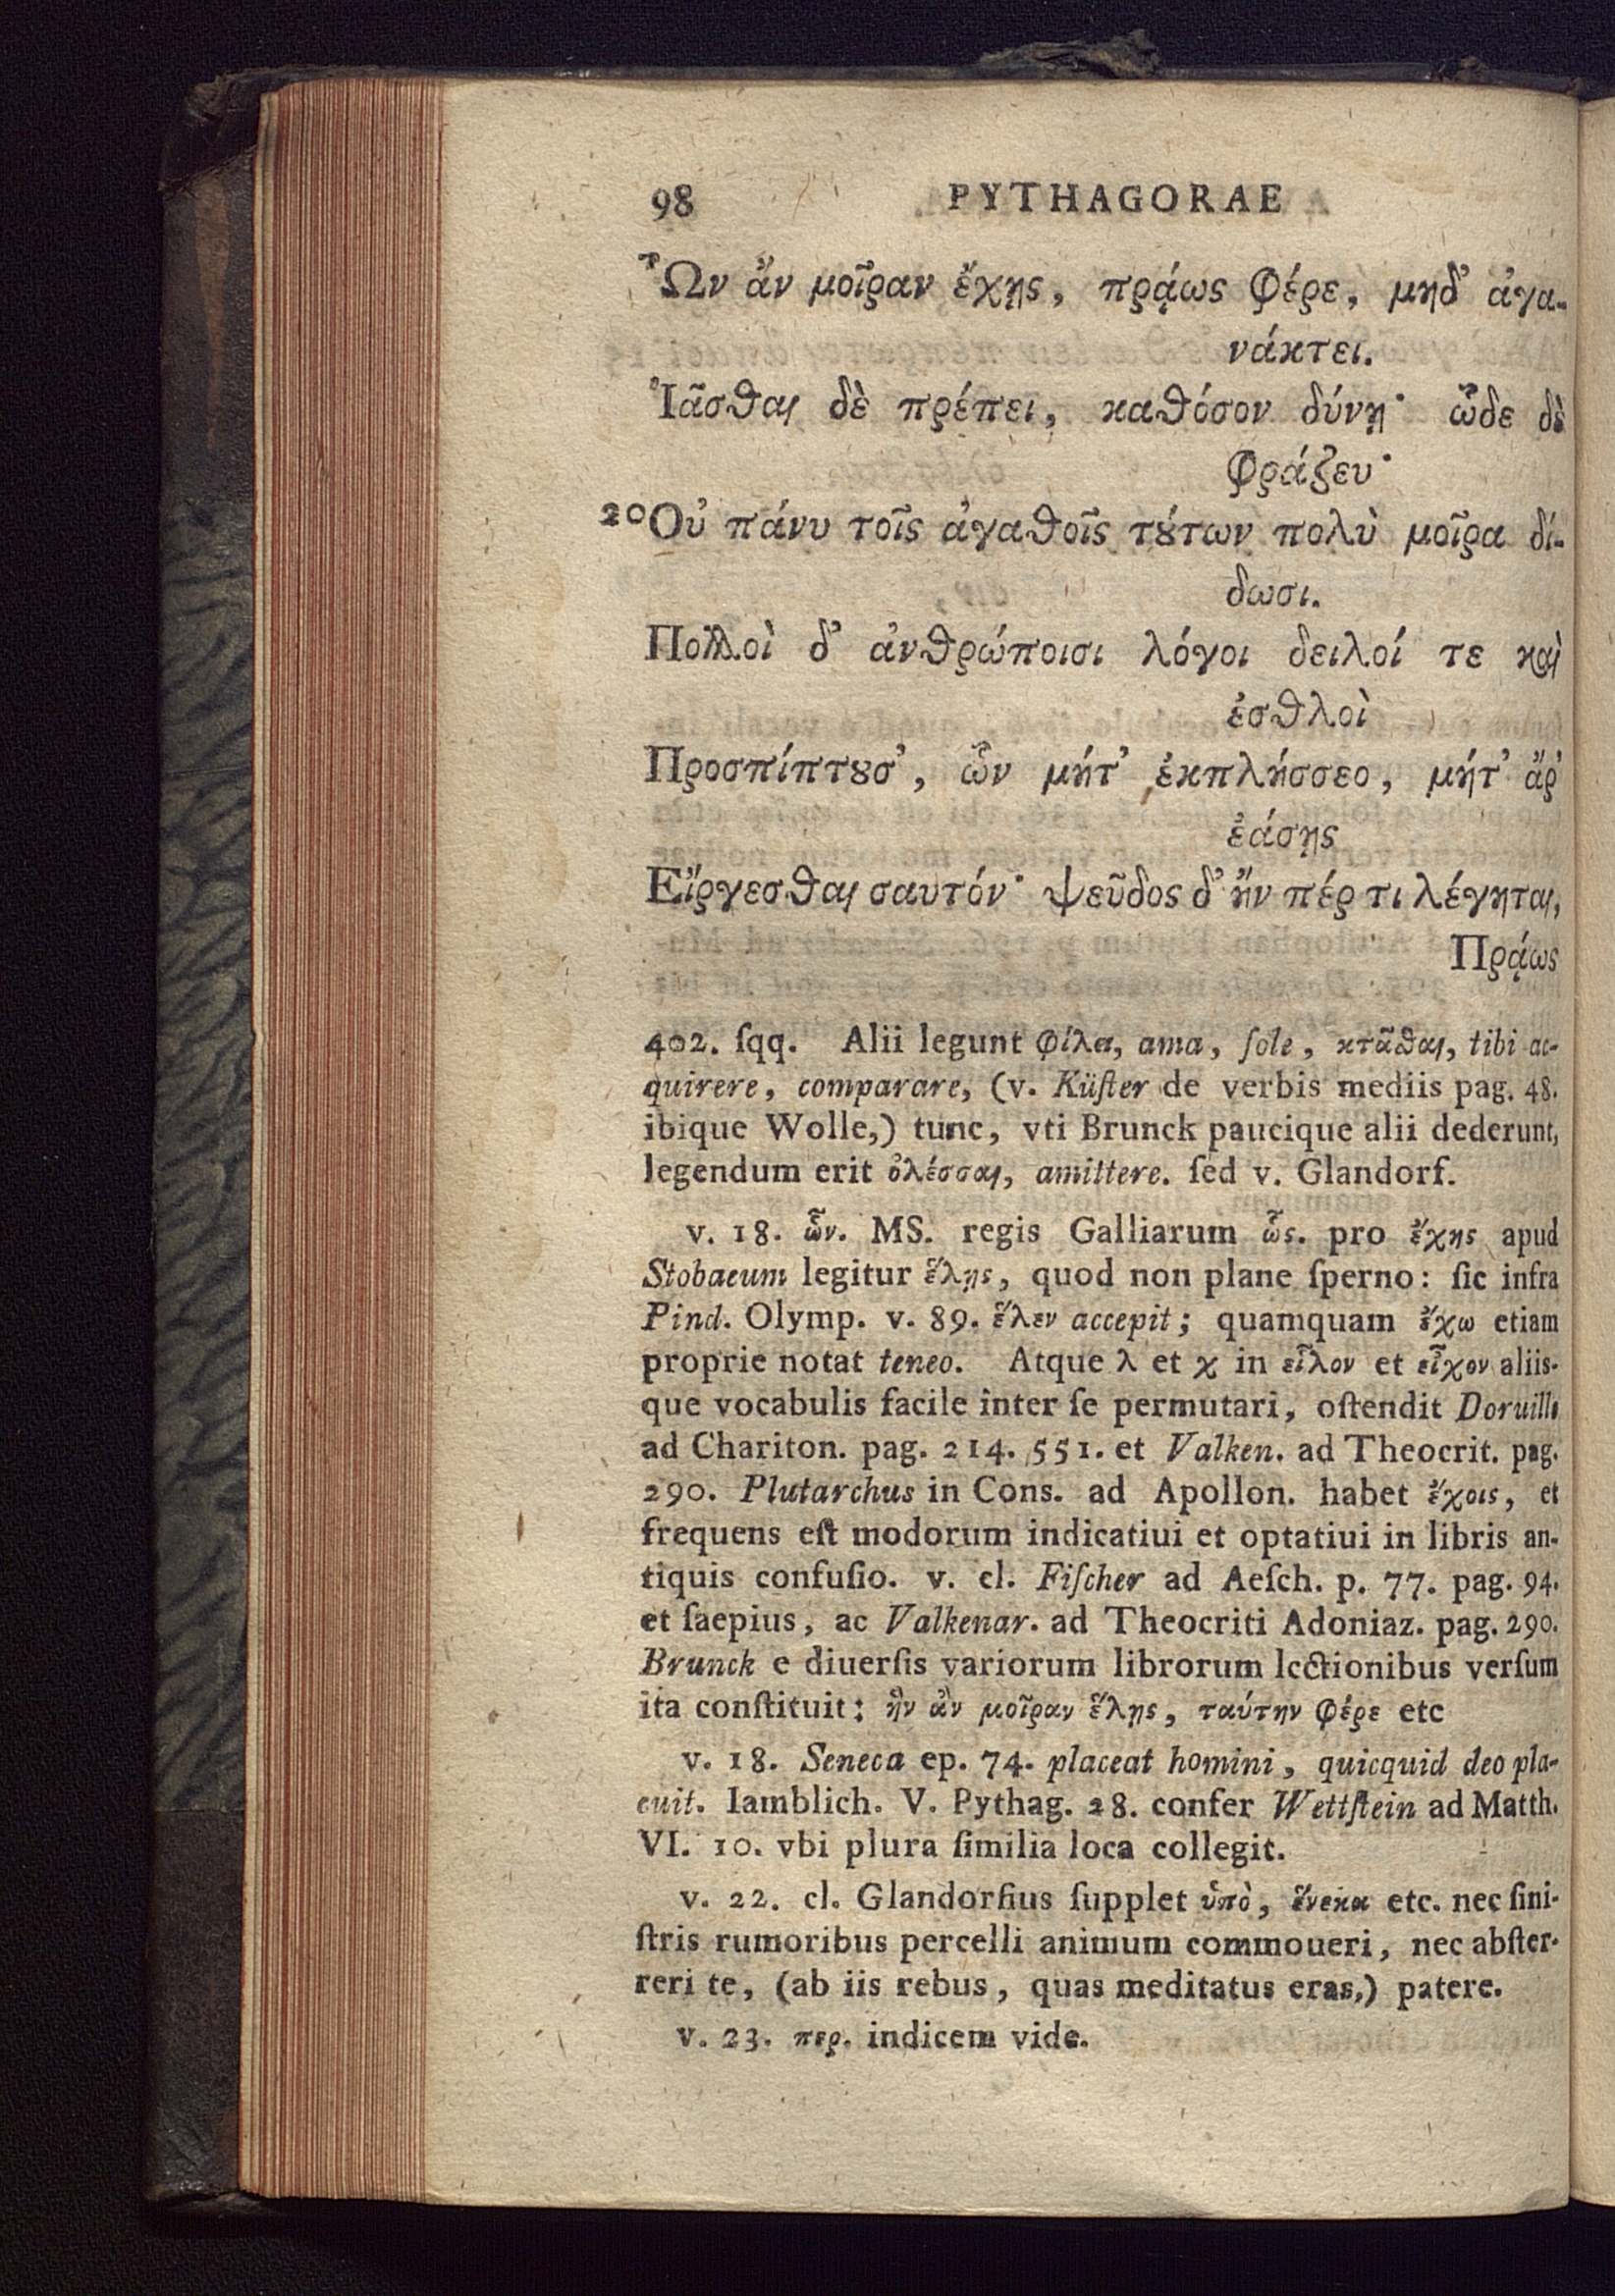 98 PYTHAGORAE
Ὧν ἂν μοῖραν ἔχῃς, πρᾴως φέρε, μηδ᾽ ἀγα-
νάκτει.
Ἰᾶσθαι δὲ πρέπει, καθόσον δύνῃ· ὧδε δὲ
φράζευ·
20 Οὐ πάνυ τοῖς ἀγαθοῖς τȣ́των πολὺ μοῖρα δί-
δωσι.
Πολλοὶ δ᾽ ἀνθρώποισι λόγοι δειλοί τε καὶ
ἐσθλοὶ
Προσπίπτȣσ᾽, ὧν μήτ᾽ ἐκπλήσσεο, μήτ᾽ ἄρ᾽
ἐάσῃς
Εἴργεσθαι σαυτόν· ψεῦδος δ᾽ ἤν πέρ τι λέγηται,
Πρᾴως
402. ſqq. Alii legunt φίλει, ama, ſole, κτᾶσθαι, tibi ac-
quirere, comparare, (v. Küſter de verbis mediis pag. 48.
ibique Wolle,) tunc, vti Brunck paucique alii dederunt,
legendum erit ὀλέσσαι, amittere. ſed v. Glandorf.
v. 18. ὧν. MS. regis Galliarum ὧς. pro ἔχης apud
Stobaeum legitur ἕλῃς, quod non plane ſperno: ſic infra
Pind. Olymp. v. 89. ἕλεν accepit; quamquam ἔχω etiam
proprie notat teneo. Atque λ et χ in εἷλον et εἶχον aliis-
que vocabulis facile inter ſe permutari, oſtendit Doruille
ad Chariton. pag. 214. 551. et Valken. ad Theocrit. pag.
290. Plutarchus in Cons. ad Apollon. habet ἔχοις, et
frequens eſt modorum indicatiui et optatiui in libris an-
tiquis confuſio. v. cl. Fiſcher ad Aeſch. p. 77. pag. 94.
et ſaepius, ac Valkenar. ad Theocriti Adoniaz. pag. 290.
Brunck e diuerſis variorum librorum lectionibus verſum
ita conſtituit: ἣν ἂν μοῖραν ἕλῃς, ταύτην φέρε etc
v. 18. Seneca ep. 74. placeat homini, quicquid deo pla-
cuit. Iamblich. V. Pythag. 28. confer Wettſtein ad Matth.
VI. 10. vbi plura ſimilia loca collegit.
v. 22. cl. Glandorfius ſupplet ὑπὸ, ἕνεκα etc. nec ſini-
ſtris rumoribus percelli animum commoueri, nec abſter-
reri te, (ab iis rebus, quas meditatus eras,) patere.
v. 23. περ. indicem vide.